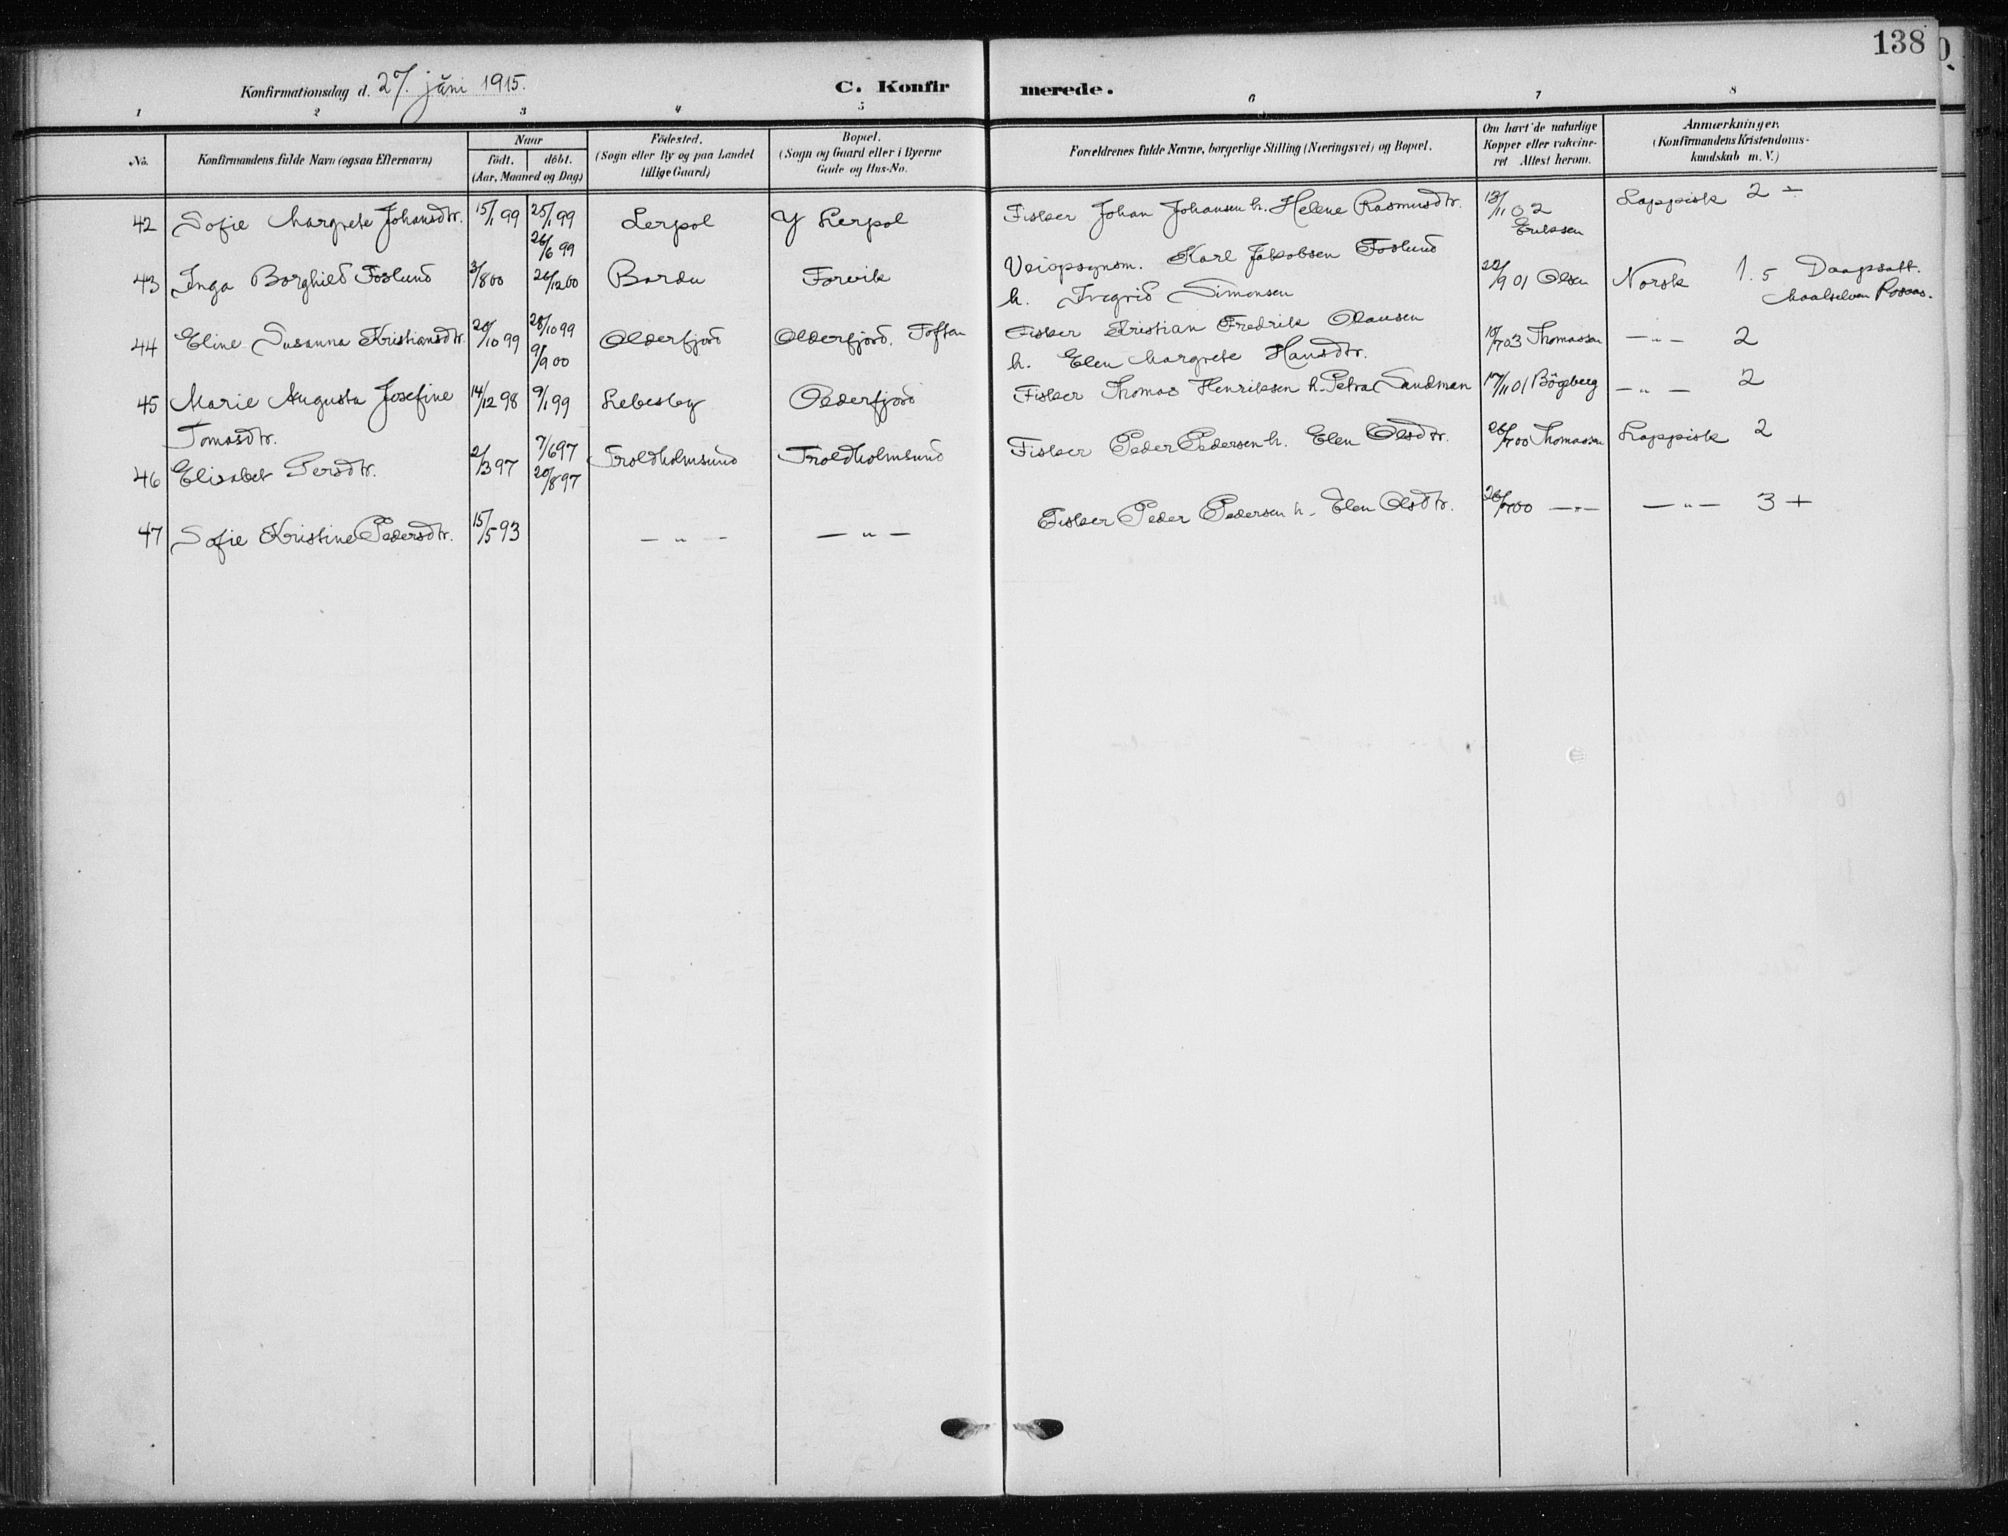 138
Konfirmationsdag d. 27. juni 1915.
C. Konfirmerede.
1 2 3 4 5 6 7 8
No.
Konfirmandens fulde Navn (ogsaa Efternavn)
Naar
født. døbt.
(Aar, Maaned og Dag)
Födested.
(Sogn eller By og paa Landet
tillige Gaard)
Bopæl.
(Sogn og Gaard eller i Byerne
Gade og Hus-No.
Forældrenes fulde Navne, borgerlige Stilling (Næringsvei) og Bopæl.
Om havt de naturlige
Kopper eller vakcine-
ret Attest herom.
Anmærkninger.
(Konfirmandens Kristendoms-
kundskab m. V.)
42 Sofie Margrete Johansdtr. 15/1 99 25/1 99 Lerpol Y Lerpol Fisker Johan Johansen h. Helene Rasmusdtr. 13/11 02 Lappisk 2 ÷
26/6 99 Eriksen
43 Inga Borghild Foslund 3/8 00 26/12 00 Bardu Forvik Veiopsynsm. Karl Jakobsen Foslund 22/9 01 Olsen Norsk 1.5 Daapsatt.
h. Ingrid Simonsen Maalselven Rossos.
44 Eline Susanna Kristiansdtr. 20/10 99 28/10 99 Olderfjord Olderfjord. Toftan Fisker Kristian Fredrik Olausen 18/7 03 Thomassen — „ — 2
9/9 00 h. Elen Margrete Hansdtr.
45 Marie Augusta Josefine 14/12 98 9/1 99 Lebesby Olderfjord Fisker Thomas Henriksen h. Petra Sandman 17/11 01 Bögeberg — „ — 2
Tomasdtr.
46 Elisabet Persdtr. 2/3 97 7/6 97 Troldholmsund Troldholmsund Fisker Peder Pedersen h. Elen Olsdtr. 26/7 00 Thomassen Lappisk 2
20/8 97
47 Sofie Kristine Pedersdtr. 15/5 93 — „ — — „ — Fisker Peder Pedersen h. Elen Olsdtr. 26/7 00 — „ — — „ — 3 +